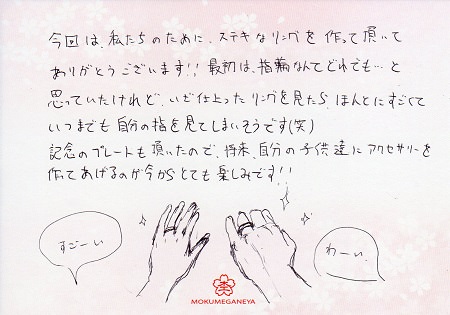 今回は、私たちのために、ステキなリングを作って頂いて
ありがとうございます!! 最初は、指輪なんてどれでも…と
思っていたけれど、いざ仕上ったリングを見たら、ほんとにすごくて
いつまでも自分の指を見てしまいそうです(笑)
記念のプレートも頂いたので、将来、自分の子供達にアクセサリーを
作ってあげるのが今からとても楽しみです!!
すごーい
わーい
MOKUMEGANEYA